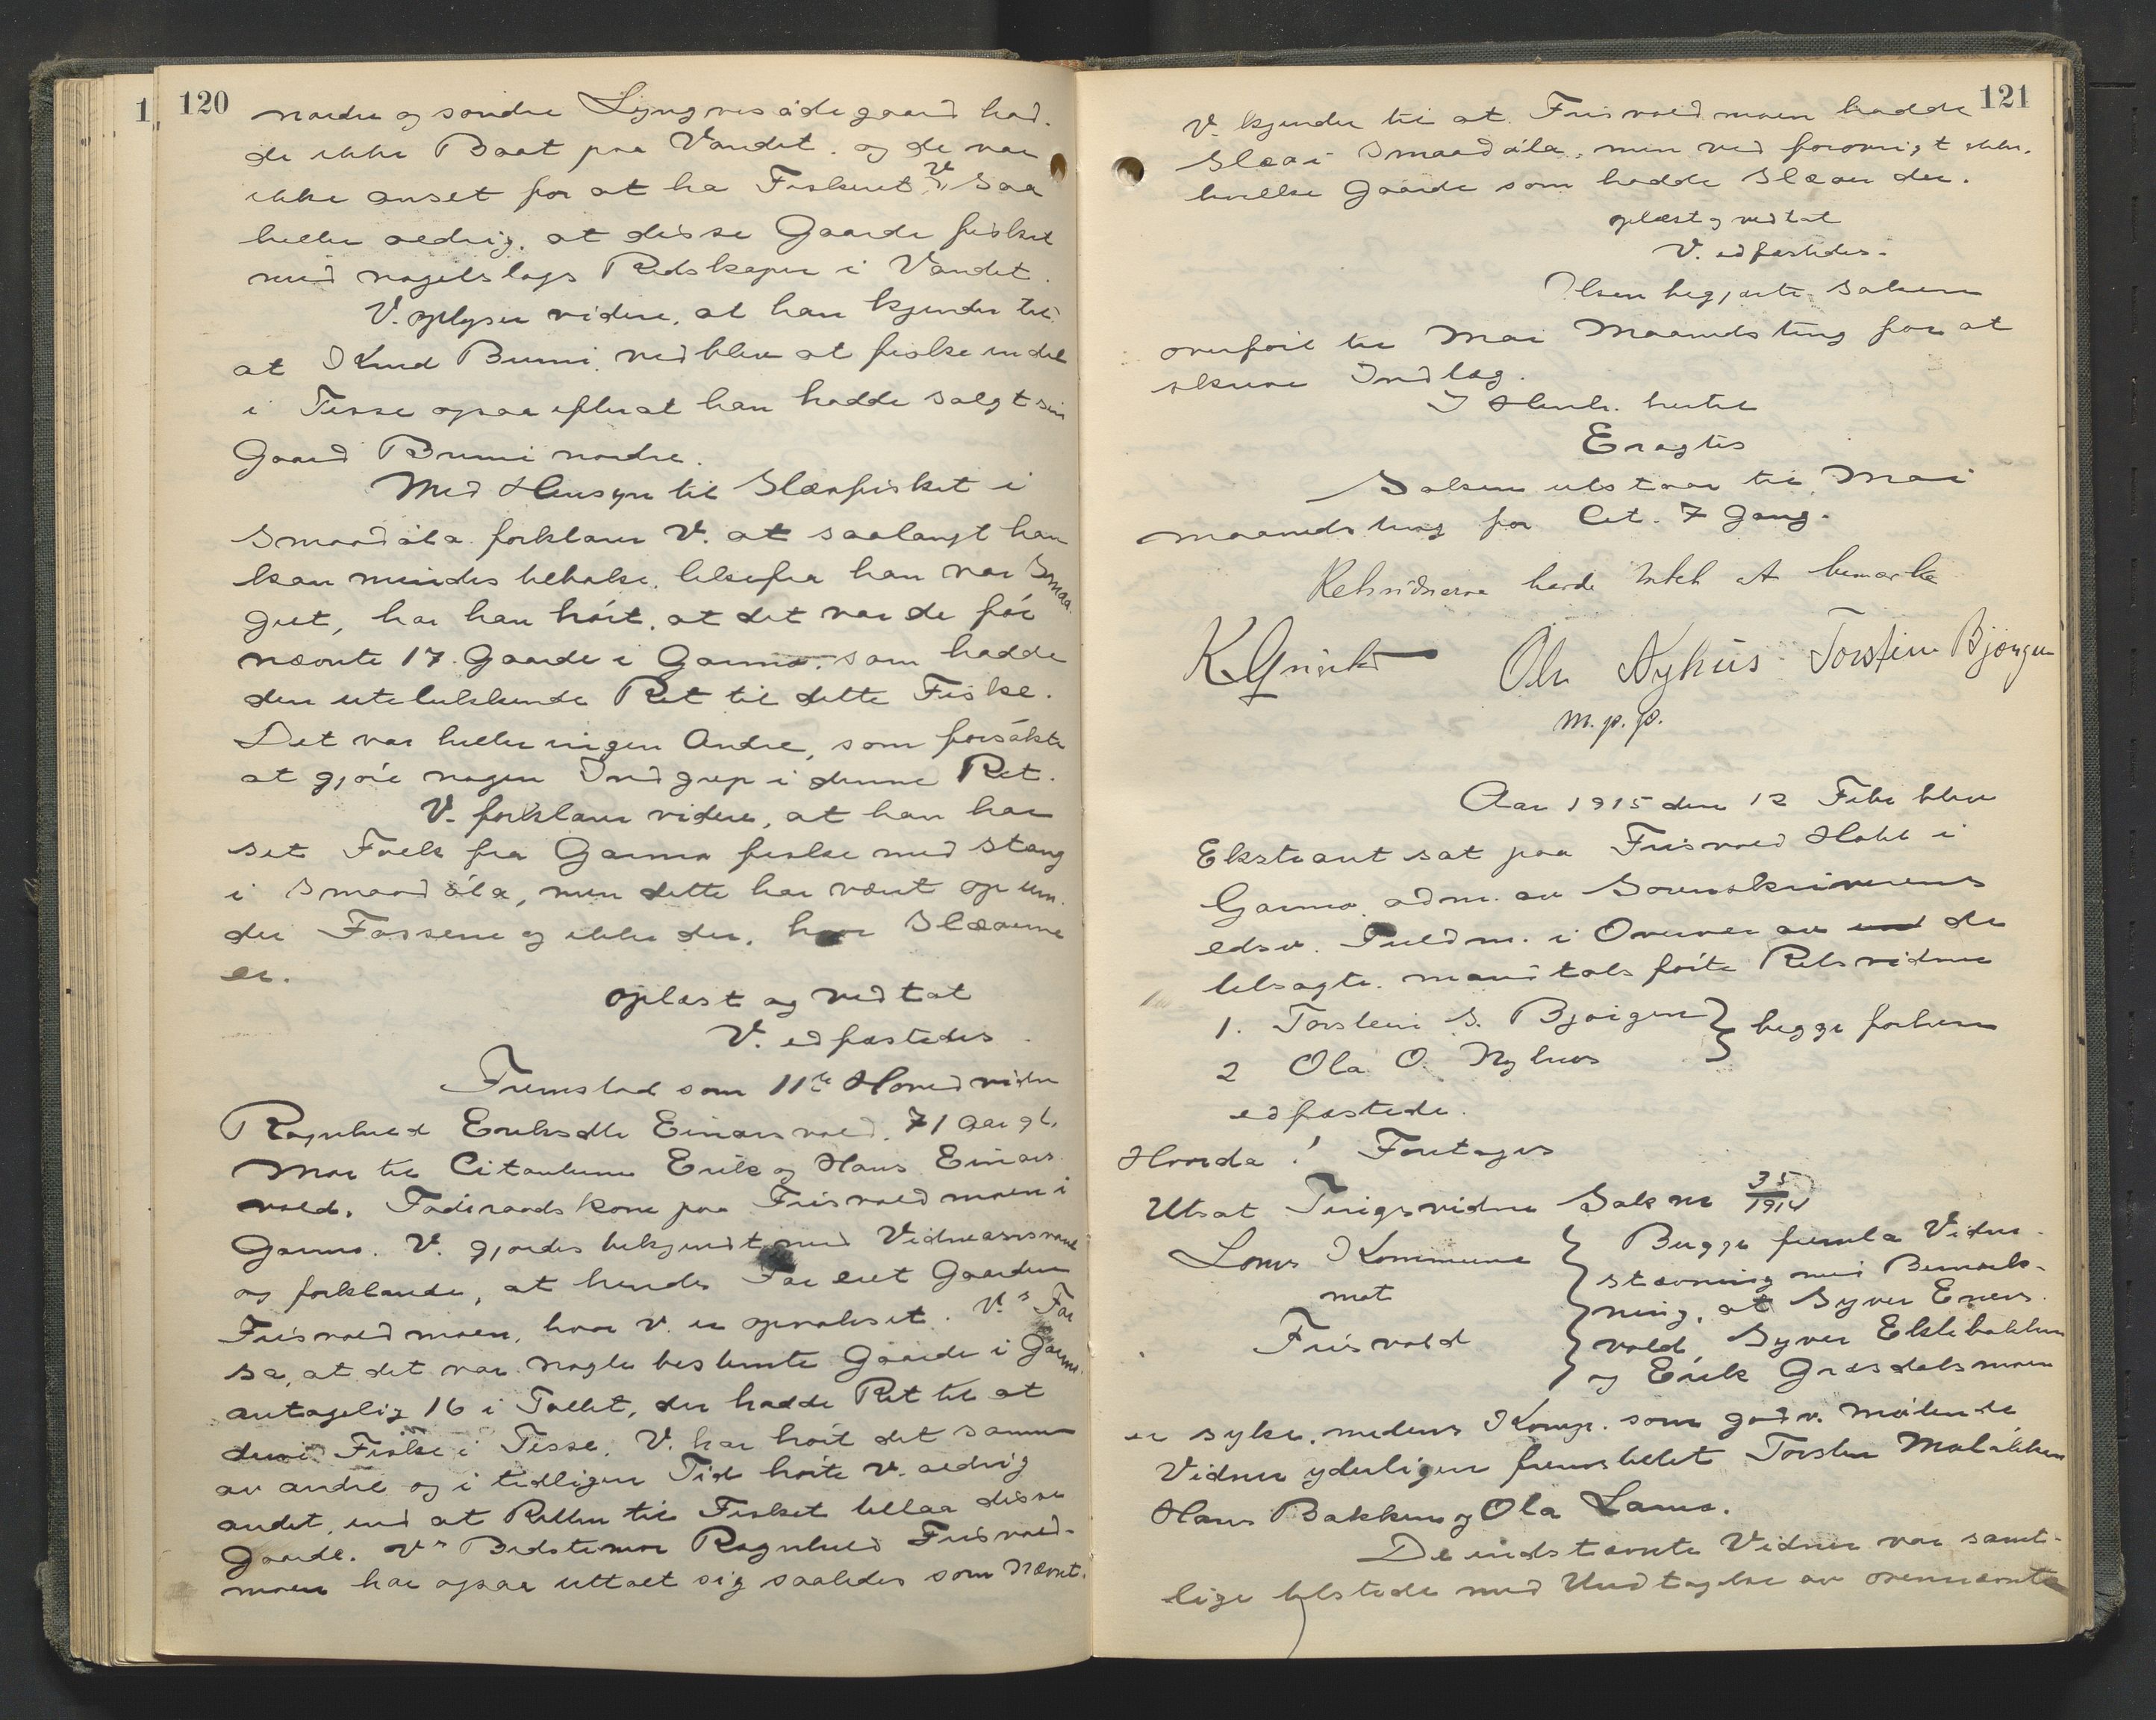 120
nordre og søndre Lyngvesødegaard had-
de ikke Baat paa Vandet. og de var
ikke anset for at ha Fiskeret. V. saa
heller aldrig, at disse Gaarde fisket
med nogetslags Redskaper i Vandet.
V. oplyser videre, at han kjender til
at Knud Brimi vedblev at fiske endel
i Tesse ogsaa efterat han hadde solgt sin
Gaard Brimi nordre.
Med Hensyn til Slæafisket i
Smaadøla forklarer V. at saalangt han
kan mindes tilbake, likefra han var Smaa-
gut, har han hørt, at det var de før
nævnte 17 Gaarde i Garmo, som hadde
den utelukkende Ret til dette Fiske.
Det var heller ingen Andre, som forsøkte
at gjøre nogen Indgrep i denne Ret.
V. forklarer videre, at han har
set Folk fra Garmo fiske med Stang
i Smaadøla, men dette har været op un-
der Fossene og ikke der, hvor Slæaerne
er.
oplæst og vedtat
V. edfæstedes.
Fremstod som 11te Hovedvidne
Ragnhild Eriksdtr Einarsvold, 71 Aar gl,
Mor til Citanterne Erik og Hans Einars-
vold, Føderaadskone paa Frisvoldmoen i
Garmo. V. gjordes bekjendt med Vidneansvaret
og forklarede, at hendes Far eiet Gaarden
Frisvoldmoen, hvor V. er opvokset. V.s Far
sa, at det var nogle bestemte Gaarde i Garmo,
antagelig 16 i Tallet, der hadde Ret til at
drive Fiske i Tesse. V. har hørt det samme
av andre og i tidligere Tid hørte V. aldrig
andet, end at Retten til Fisket tillaa disse
Gaarde. V.s Bedstemor Ragnhild Frisvold-
moen har ogsaa uttalt sig saaledes som nævnt.
121
V. kjender til at Frisvoldmoen hadde
Slæa i Smaadøla, men ved forøvrigt ikke,
hvilke Gaarde som hadde Slæaer der.
oplæst og vedtat
V. edfæstedes.
Olsen begjærte Saken
overført til Mai Maanedsting for at
skrive Indlæg.
I Henh. hertil
Eragtes
Saken utstaar til Mai
maanedsting for Cit. 7 Gang.
Retsvidnerne havde Intet at bemærke
Ola Nyhus Torstein Bjørgen
m. p. p.
Aar 1915 den 12 Febr blev
Ekstraret sat paa Frisvold Hotel i
Garmo adm. av Sorenskriverens
edsv. Fuldm. i Overvær av de
tilsagte, mandtalsførte Retsvidner
1. Torstein S. Bjørgen } begge forhen
2 Ola O. Nyhus
edfæstede.
Hvorda! Foretages
Utsat Tingsvidne Sak nr 35/1914
Loms Kommune
mot
Frisvold
Bugge fremla Vidne-
stævning med Bemærk-
ning, at Syver Einars-
vold, Syver Eklebakken
og Erik Græsdalsmoen
er syke, medens Komp. som godv. møtende
Vidner yderligere fremstillet Torstein Moløkken
Hans Bakken og Ola Lamo.
De indstævnte Vidner var samt-
lige tilstede med Undtagelse av ovennævnte